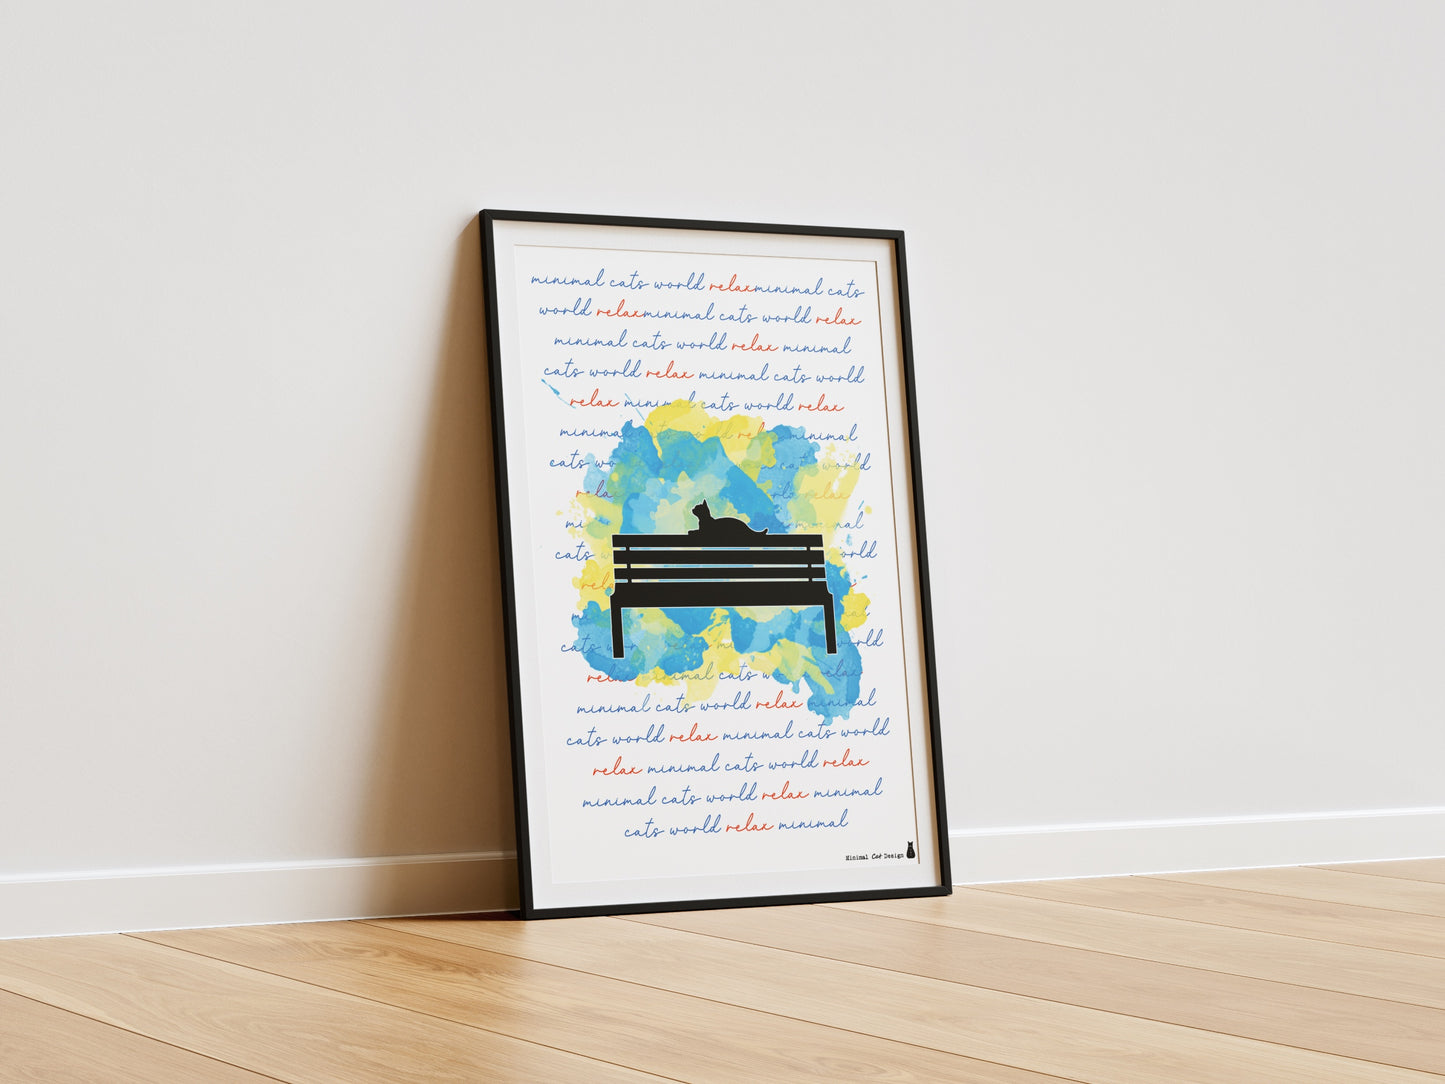 minimal cats world relaxminimal cats
world relaxminimal cats world relax
minimal cats world relax minimal
cats world relax minimal cats world
relax minimal cats world relax
minimal cats world relax minimal
cats world
relax world relax
minimal
cats world
relax
cats world
relax minimal cats world relax
minimal cats world relax minimal
cats world relax minimal cats world
relax minimal cats world relax
minimal cats world relax minimal
cats world relax minimal
Minimal Cat Design